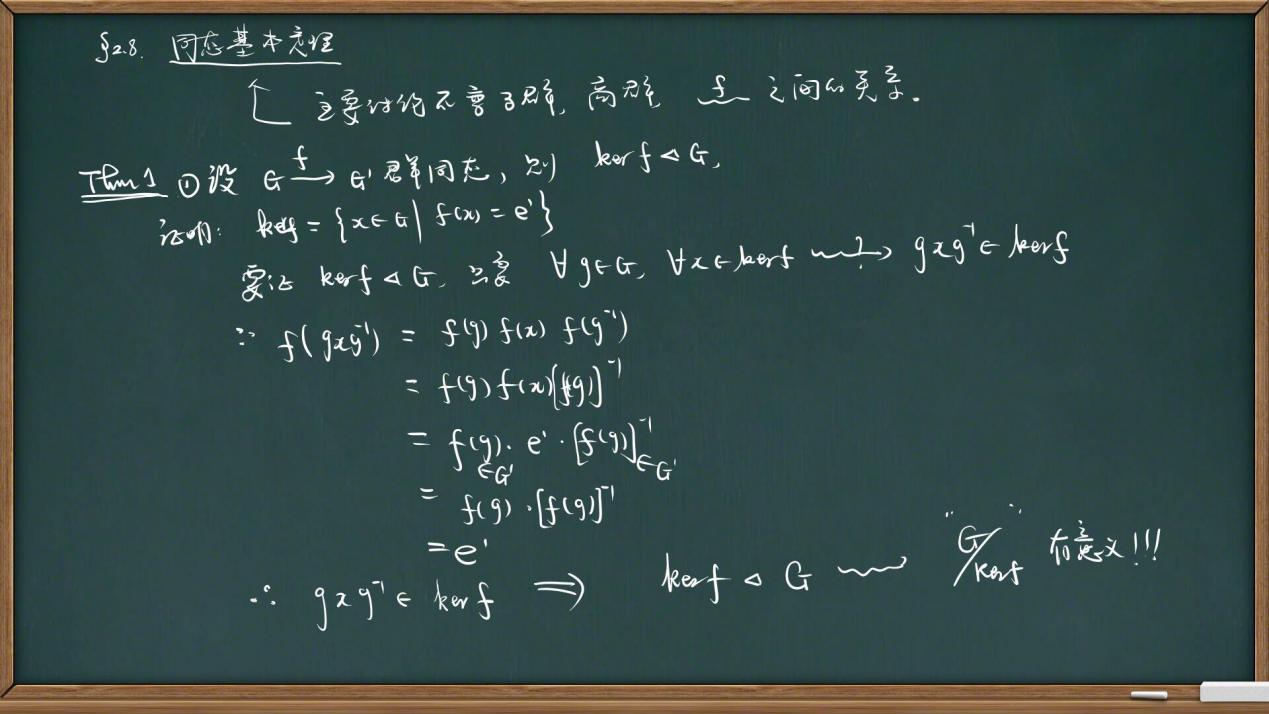 §2.8. 同态基本定理
主要讨论不变子群, 商群, f 之间的关系.
Thm1 ① 设 G \xrightarrow{f} G' 群同态, 则 ker f ◁ G,
证明: ker f = {x ∈ G | f(x) = e'}
要证 ker f ◁ G, 只要 ∀ g ∈ G, ∀ x ∈ ker f \xrightarrow{?} g x g⁻¹ ∈ ker f
∵ f(g x g⁻¹) = f(g) f(x) f(g⁻¹)
= f(g) f(x) [f(g)]⁻¹
= f(g) · e' · [f(g)]⁻¹
∈G' ∈G'
= f(g) · [f(g)]⁻¹
= e'
∴ g x g⁻¹ ∈ ker f ⟹ ker f ◁ G ⇝ "G/ker f" 有意义!!!